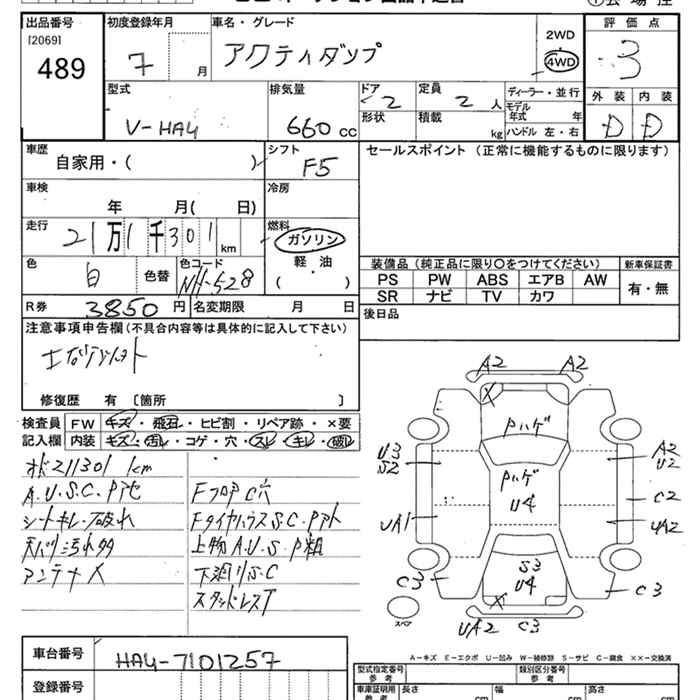 出品番号 初度登録年月 車名・グレード 評価点
[2069] 2WD
489 7 月 アクティダンプ 4WD 3
型式 排気量 ドア 定員 ディーラー・並行 外装 内装
2 2 人 モデル年式 年
V-HA4 660 cc 形状 積載 kg ハンドル 左・右 D D
車歴 シフト セールスポイント (正常に機能するものに限ります)
自家用・( ) F5
車検 冷房
年 月( 日)
走行 燃料
21万1千301 km ガソリン
軽油
色 色替 色コード ( ・ )
白 NH-528
装備品 (純正品に限り○をつけてください) 新車保証書
PS PW ABS エアB AW 有・無
SR ナビ TV カワ
R券 3850 円 名変期限 月 日 後日品
注意事項申告欄(不具合内容等は具体的に記入して下さい)
修復歴 有 〔箇所 〕
検査員 FW キズ・飛石・ヒビ割・リペア跡・×要
記入欄 内装 キズ・汚れ・コゲ・穴・スレ・キレ・破れ
211301 km
A.U.S.C.Pアセ FフロアC穴
シートキレ・破れ FタイヤハウスS.C.Pアト
天バリ汚れ多 上物A.U.S.P粗
アンテナX 下廻りS.C
スタッドレスT
A2 A2
X
Pハゲ
U3 S2 A2 U2
Pハゲ
U4 C2
UA1 UA2
S3
U4
C3 C3
X
スペア UA2 C3
A-キズ E-エクボ U-凹み W-補修跡 S-サビ C-腐食 ××-交換済
車台番号 HA4-7101257 型式指定番号 参考 類別区分番号 参考
登録番号 車庫証明用 参考 長さ cm 幅 cm 高さ cm